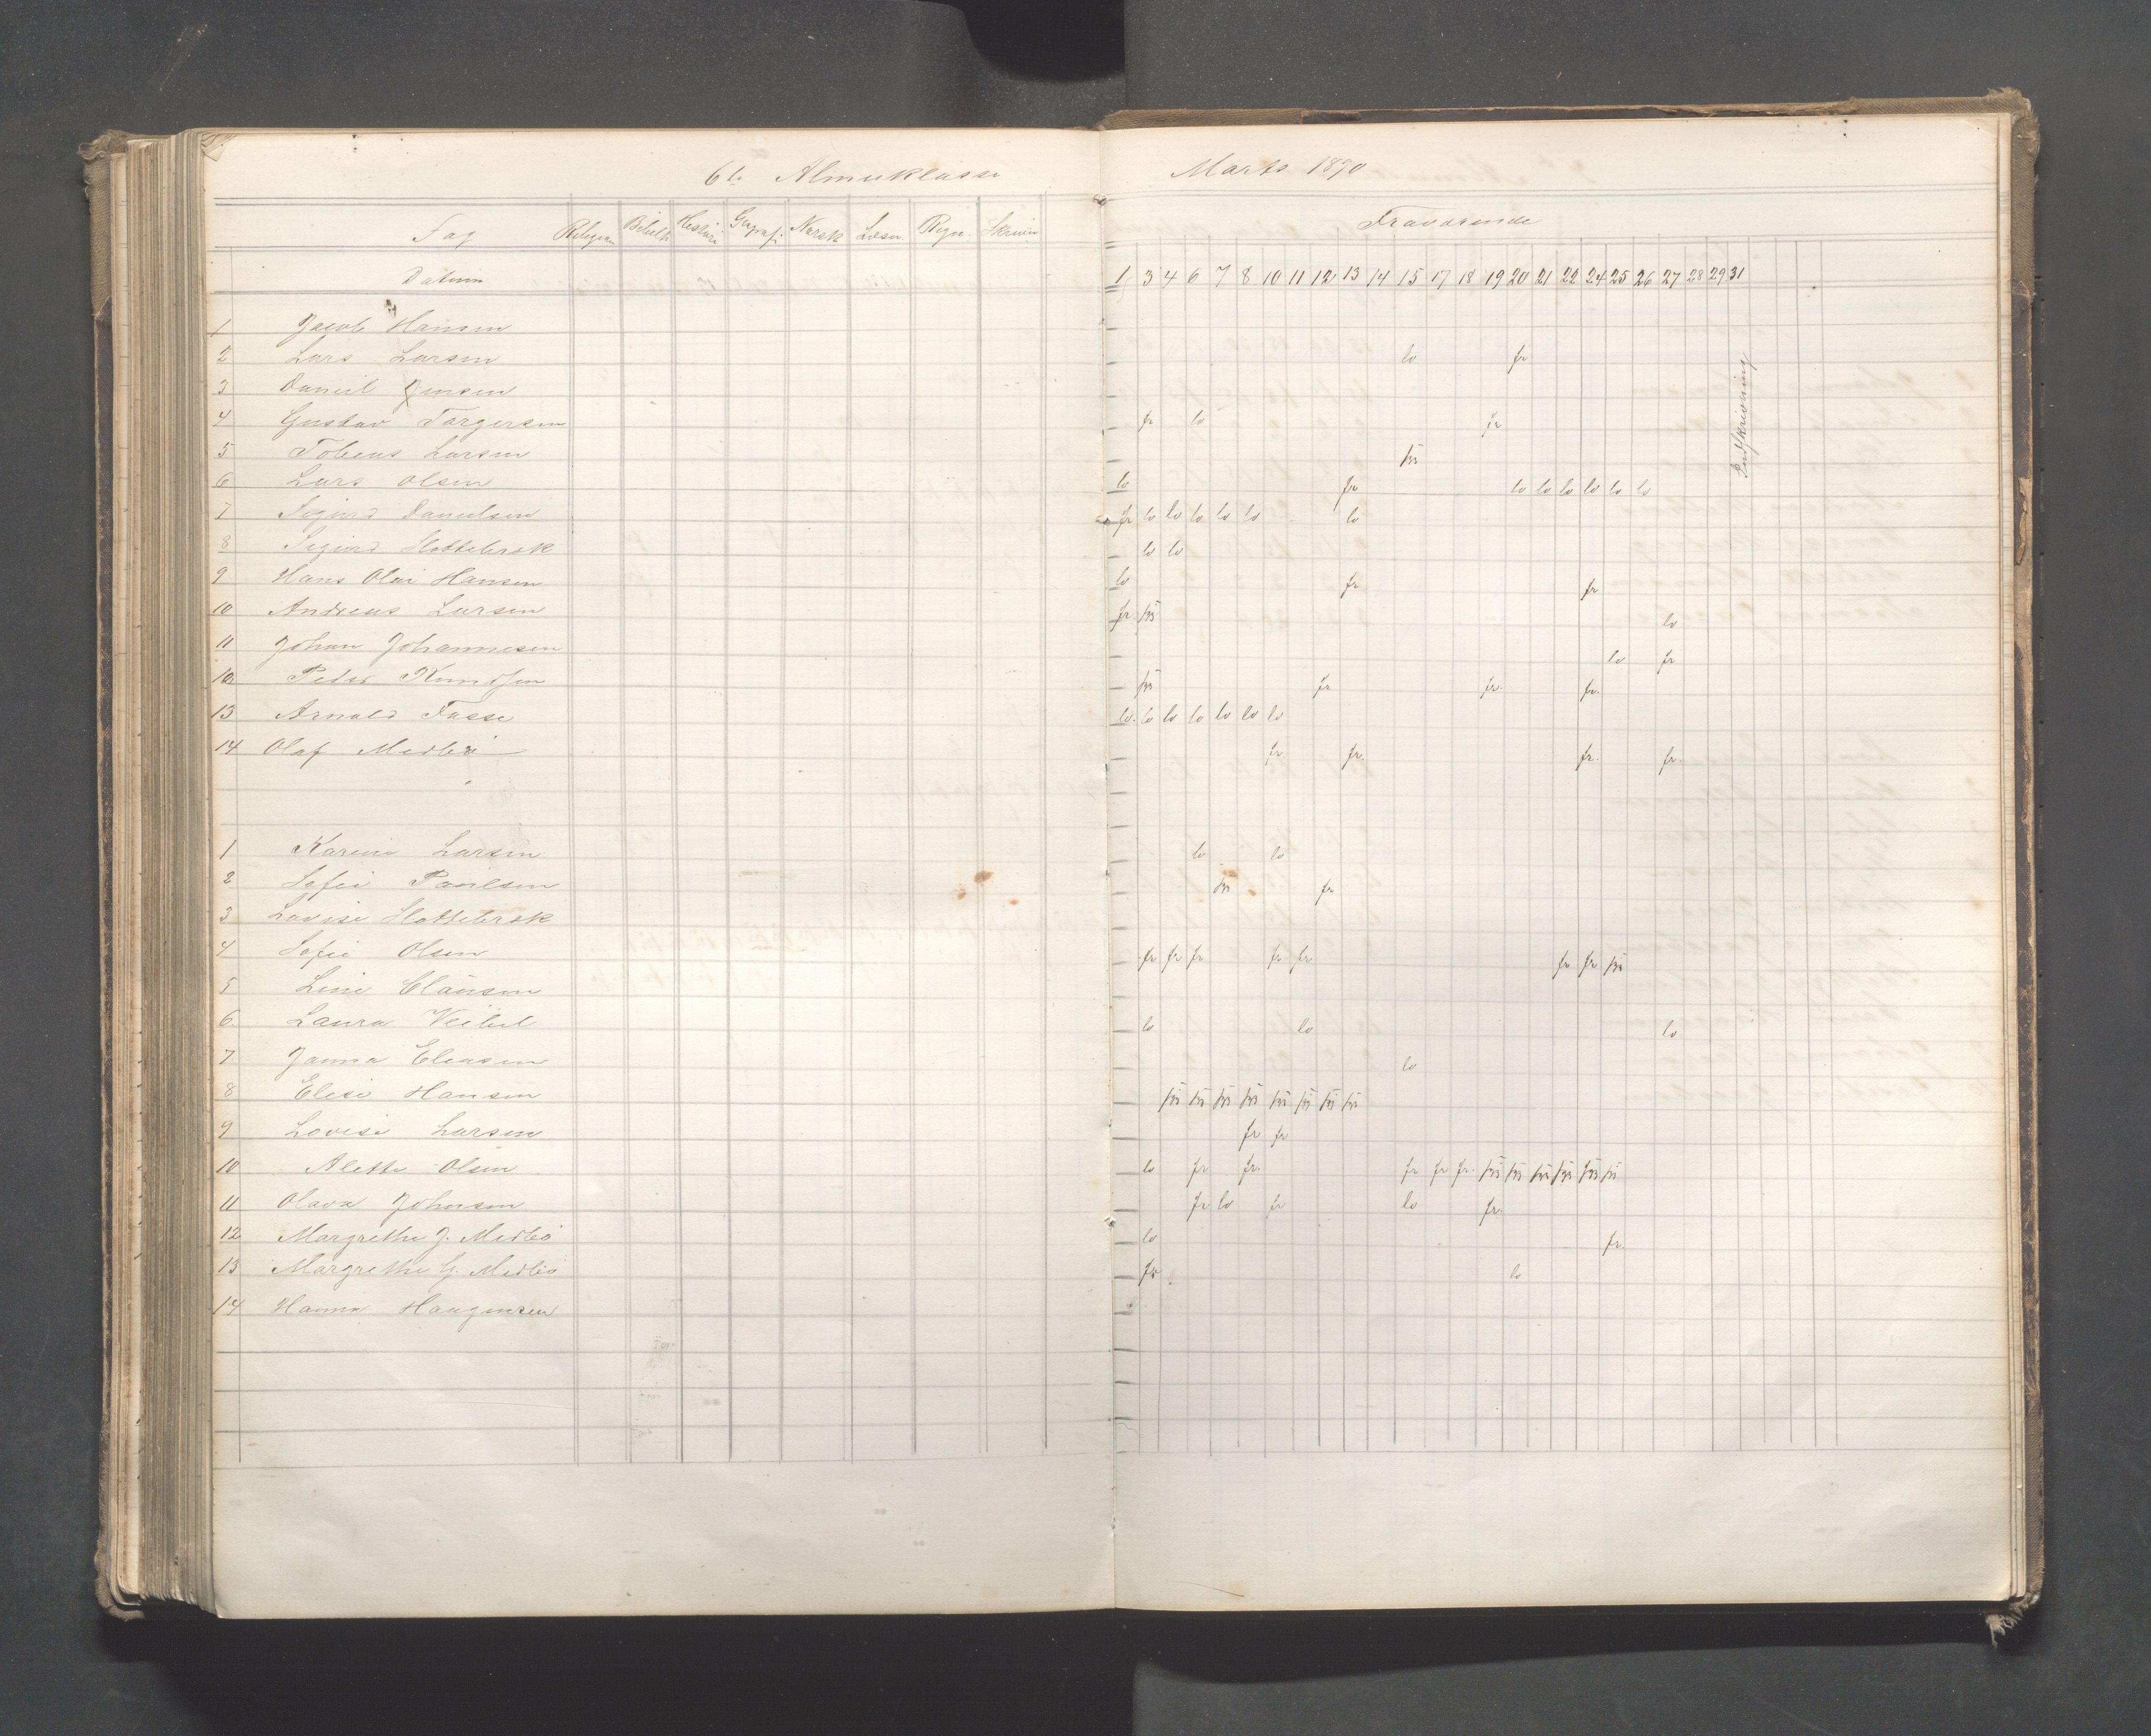 6te Almueklasse Marts 1890
Fag Religion Historie Geografi Norsk Læsn. Regn. Skrivn
Fraværende
Datum 1 3 4 6 7 8 10 11 12 13 14 15 17 18 19 20 21 22 24 25 26 27 28 29 31
1 Jacob Hansen
2 Lars Larsen lo fr
3 Daniel Jensen
4 Gustav Torgersen fr lo fr
5 Tobias Larsen
6 Lars Olsen lo fr lo lo lo lo lo lo
7 Sigurd Danielsen fr lo lo lo lo lo lo
8 Sigurd Slottebrøk lo lo
9 Hans Olai Hansen lo fr fr
10 Andreas Larsen fr lo
11 Johan Johannesen lo fr
12 Peder Knudsen fr fr. fr.
13 Arnold Tasse lo. lo lo lo lo lo lo
14 Olaf Medbö fr. fr. fr. fr.
1 Karine Larsen lo lo
2 Sofie Paulsen fr
3 Lovise Slottebrøk
4 Sofie Olsen fr fr fr fr fr fr fr
5 Line Clausen
6 Laura Veibel lo lo lo
7 Janna Eliasen lo
8 Elise Hansen
9 Lovise Larsen fr fr
10 Alette Olsen lo fr fr. fr fr fr.
11 Olava Johnsen fr lo fr lo fr.
12 Margrethe J. Medbö lo fr.
13 Margrethe G. Medbö fr lo
14 Hanna Haagensen